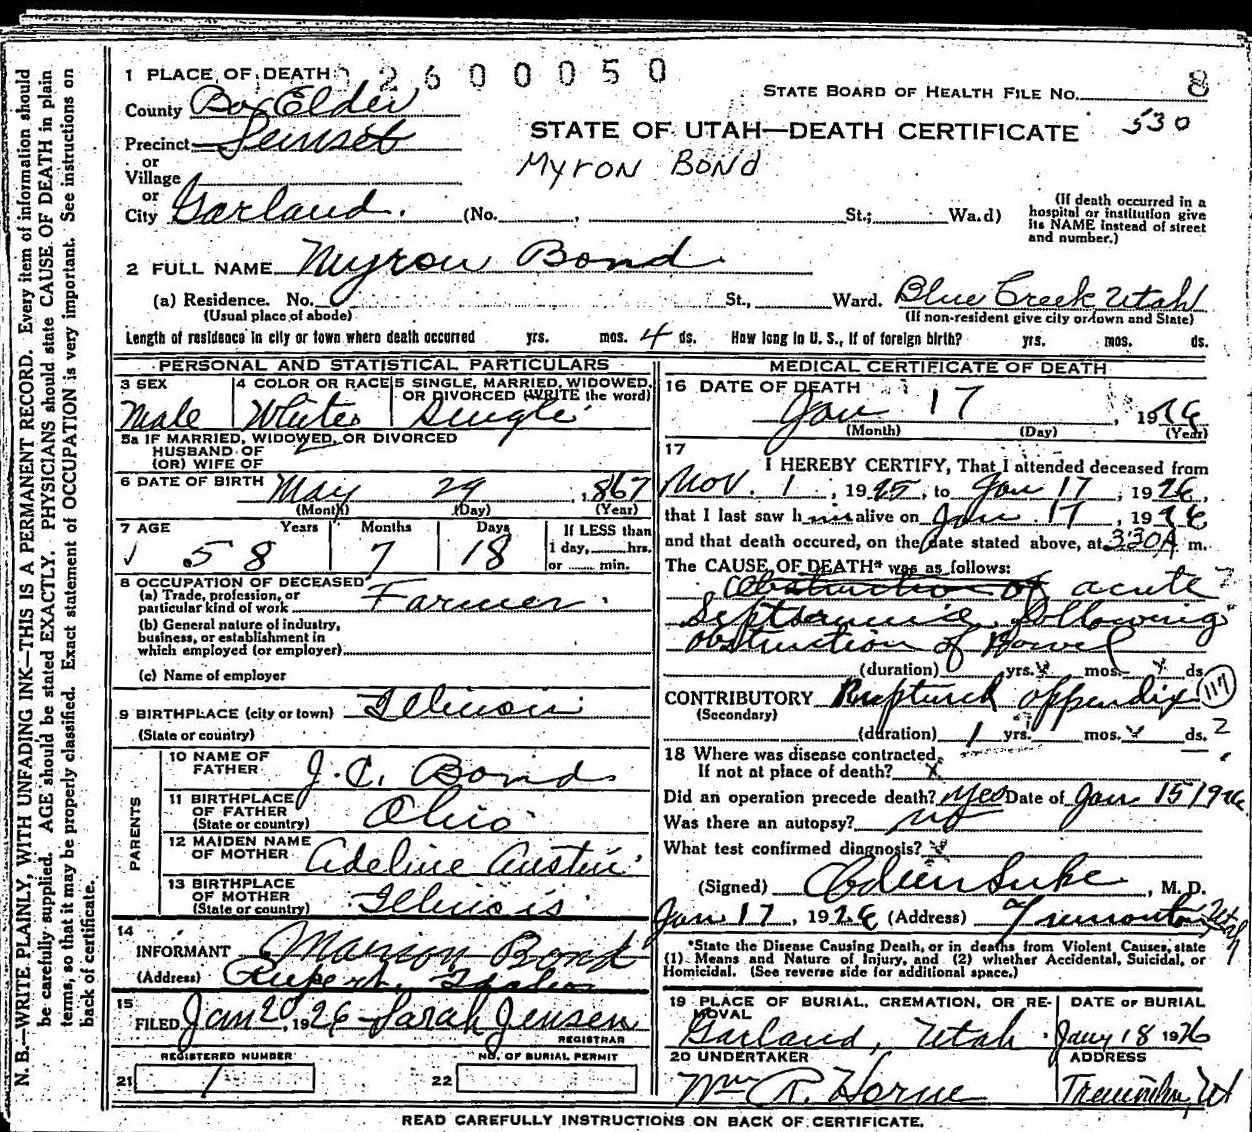 N. B.—WRITE PLAINLY, WITH UNFADING INK—THIS IS A PERMANENT RECORD. Every item of information should
be carefully supplied. AGE should be stated EXACTLY. PHYSICIANS should state CAUSE OF DEATH in plain
terms, so that it may be properly classified. Exact statement of OCCUPATION is very important. See instructions on
back of certificate.
1 PLACE OF DEATH 2600050
County Box Elder
Precinct Sunset
or
Village
or
City Garland. (No. , St.; Wa.d)
STATE BOARD OF HEALTH FILE NO. 8
530
STATE OF UTAH—DEATH CERTIFICATE
Myron Bond
(If death occurred in a
hospital or institution give
its NAME instead of street
and number.)
2 FULL NAME Myron Bond
(a) Residence. No. St., Ward. Blue Creek, Utah
(Usual place of abode) (If non-resident give city or town and State)
Length of residence in city or town where death occurred yrs. mos. 4 ds. How long in U. S., if of foreign birth? yrs. mos. ds.
PERSONAL AND STATISTICAL PARTICULARS
3 SEX Male
4 COLOR OR RACE White
5 SINGLE, MARRIED, WIDOWED,
OR DIVORCED (WRITE the word)
Single
5a IF MARRIED, WIDOWED, OR DIVORCED
HUSBAND OF
(OR) WIFE OF
6 DATE OF BIRTH May 29, 1867
(Month) (Day) (Year)
7 AGE Years Months Days If LESS than
58 7 18 1 day, hrs.
or min.
8 OCCUPATION OF DECEASED
(a) Trade, profession, or
particular kind of work Farmer.
(b) General nature of industry,
business, or establishment in
which employed (or employer)
(c) Name of employer
9 BIRTHPLACE (city or town) Illinois
(State or country)
PARENTS
10 NAME OF
FATHER J. C. Bond
11 BIRTHPLACE
OF FATHER
(State or country) Ohio
12 MAIDEN NAME
OF MOTHER Adeline Austin
13 BIRTHPLACE
OF MOTHER
(State or country) Illinois
14
INFORMANT Marion Bond
(Address) Rupert, Idaho
15
FILED Jan 20, 1926 Sarah Jensen
REGISTRAR
REGISTERED NUMBER NO. OF BURIAL PERMIT
21 1 22
MEDICAL CERTIFICATE OF DEATH
16 DATE OF DEATH
Jan 17, 1926
(Month) (Day) (Year)
17
I HEREBY CERTIFY, That I attended deceased from
Nov. 1, 1925, to Jan 17, 1926,
that I last saw him alive on Jan. 17, 1926
and that death occured, on the date stated above, at 3:30 A m.
The CAUSE OF DEATH* was as follows:
Obstruction of acute
Septicemia following
obstruction of Bowel
(duration) yrs. mos. ds.
117
CONTRIBUTORY Ruptured appendix
(Secondary)
(duration) 1 yrs. mos. ds. 2
18 Where was disease contracted,
If not at place of death? x
Did an operation precede death? Yes Date of Jan 15 1926
Was there an autopsy? no
What test confirmed diagnosis? x
(Signed) , M. D.
Jan 17, 1926 (Address) Tremonton, Utah
*State the Disease Causing Death, or in deaths from Violent Causes, state
(1) Means and Nature of Injury, and (2) whether Accidental, Suicidal, or
Homicidal. (See reverse side for additional space.)
19 PLACE OF BURIAL, CREMATION, OR RE-
MOVAL
Garland, Utah
DATE OF BURIAL
Jany 18 1926
20 UNDERTAKER
Wm R. Horne
ADDRESS
Tremonton, Ut
READ CAREFULLY INSTRUCTIONS ON BACK OF CERTIFICATE.